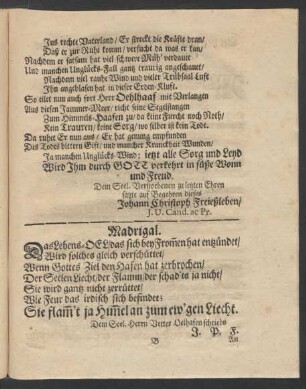 Ins rechte Vaterland/ Er streckt die Kräffte dran/
Daß er zur Ruhe komm/ versucht da was er kan/
Nachdem er satsam hat viel schwere Müh' verdauet
Und manchen Unglücks-Fall gantz traurig angeschauet/
Nachdem viel rauhe Wind und vieler Trübsaal Lufft
Ihn angeblasen hat in dieser Erden-Klufft.
So eilet nun auch fort Herr Oehlhaaf mit Verlangen
Aus diesen Jammer-Meer/ richt seine Segelstangen
Zum Himmels-Haafen zu da keine Furcht noch Noth/
Kein Trauren/ keine Sorg/ wo selber ist kein Tode.
Da ruhet Er nun aus/ Er hat genung empfunden
Des Todes bittern Gift/ und mancher Kranckheit Wunden/
Ja manchen Unglücks-Wind; ietzt alle Sorg und Leyd
Wird Jhm durch GOTT verkehrt in süsse Wonn
und Freud.
Dem Seel. Verstorbenen zu letzten Ehren
setzte auf Begehren dieses
Johann Christoph Freießleben/
J. U. Cand. ac Pr.
Madrigal.
Das Lebens-OEL das sich bey From̃en hat entzündet/
Wird solches gleich verschüttet/
Wenn Gottes Ziel den Hafen hat zerbrochen/
Der Seelen Liecht/ der Flamm/ der schad'ts ja nicht/
Sie wird gantz nicht zerrüttet/
Wie Feur das irdisch sich befindet:
Sie flam̃'t ja Him̃el an zum ew'gen Liecht.
Dem Seel. Herrn Vetter Oelhafen schriebs
J. P. F.
B
An